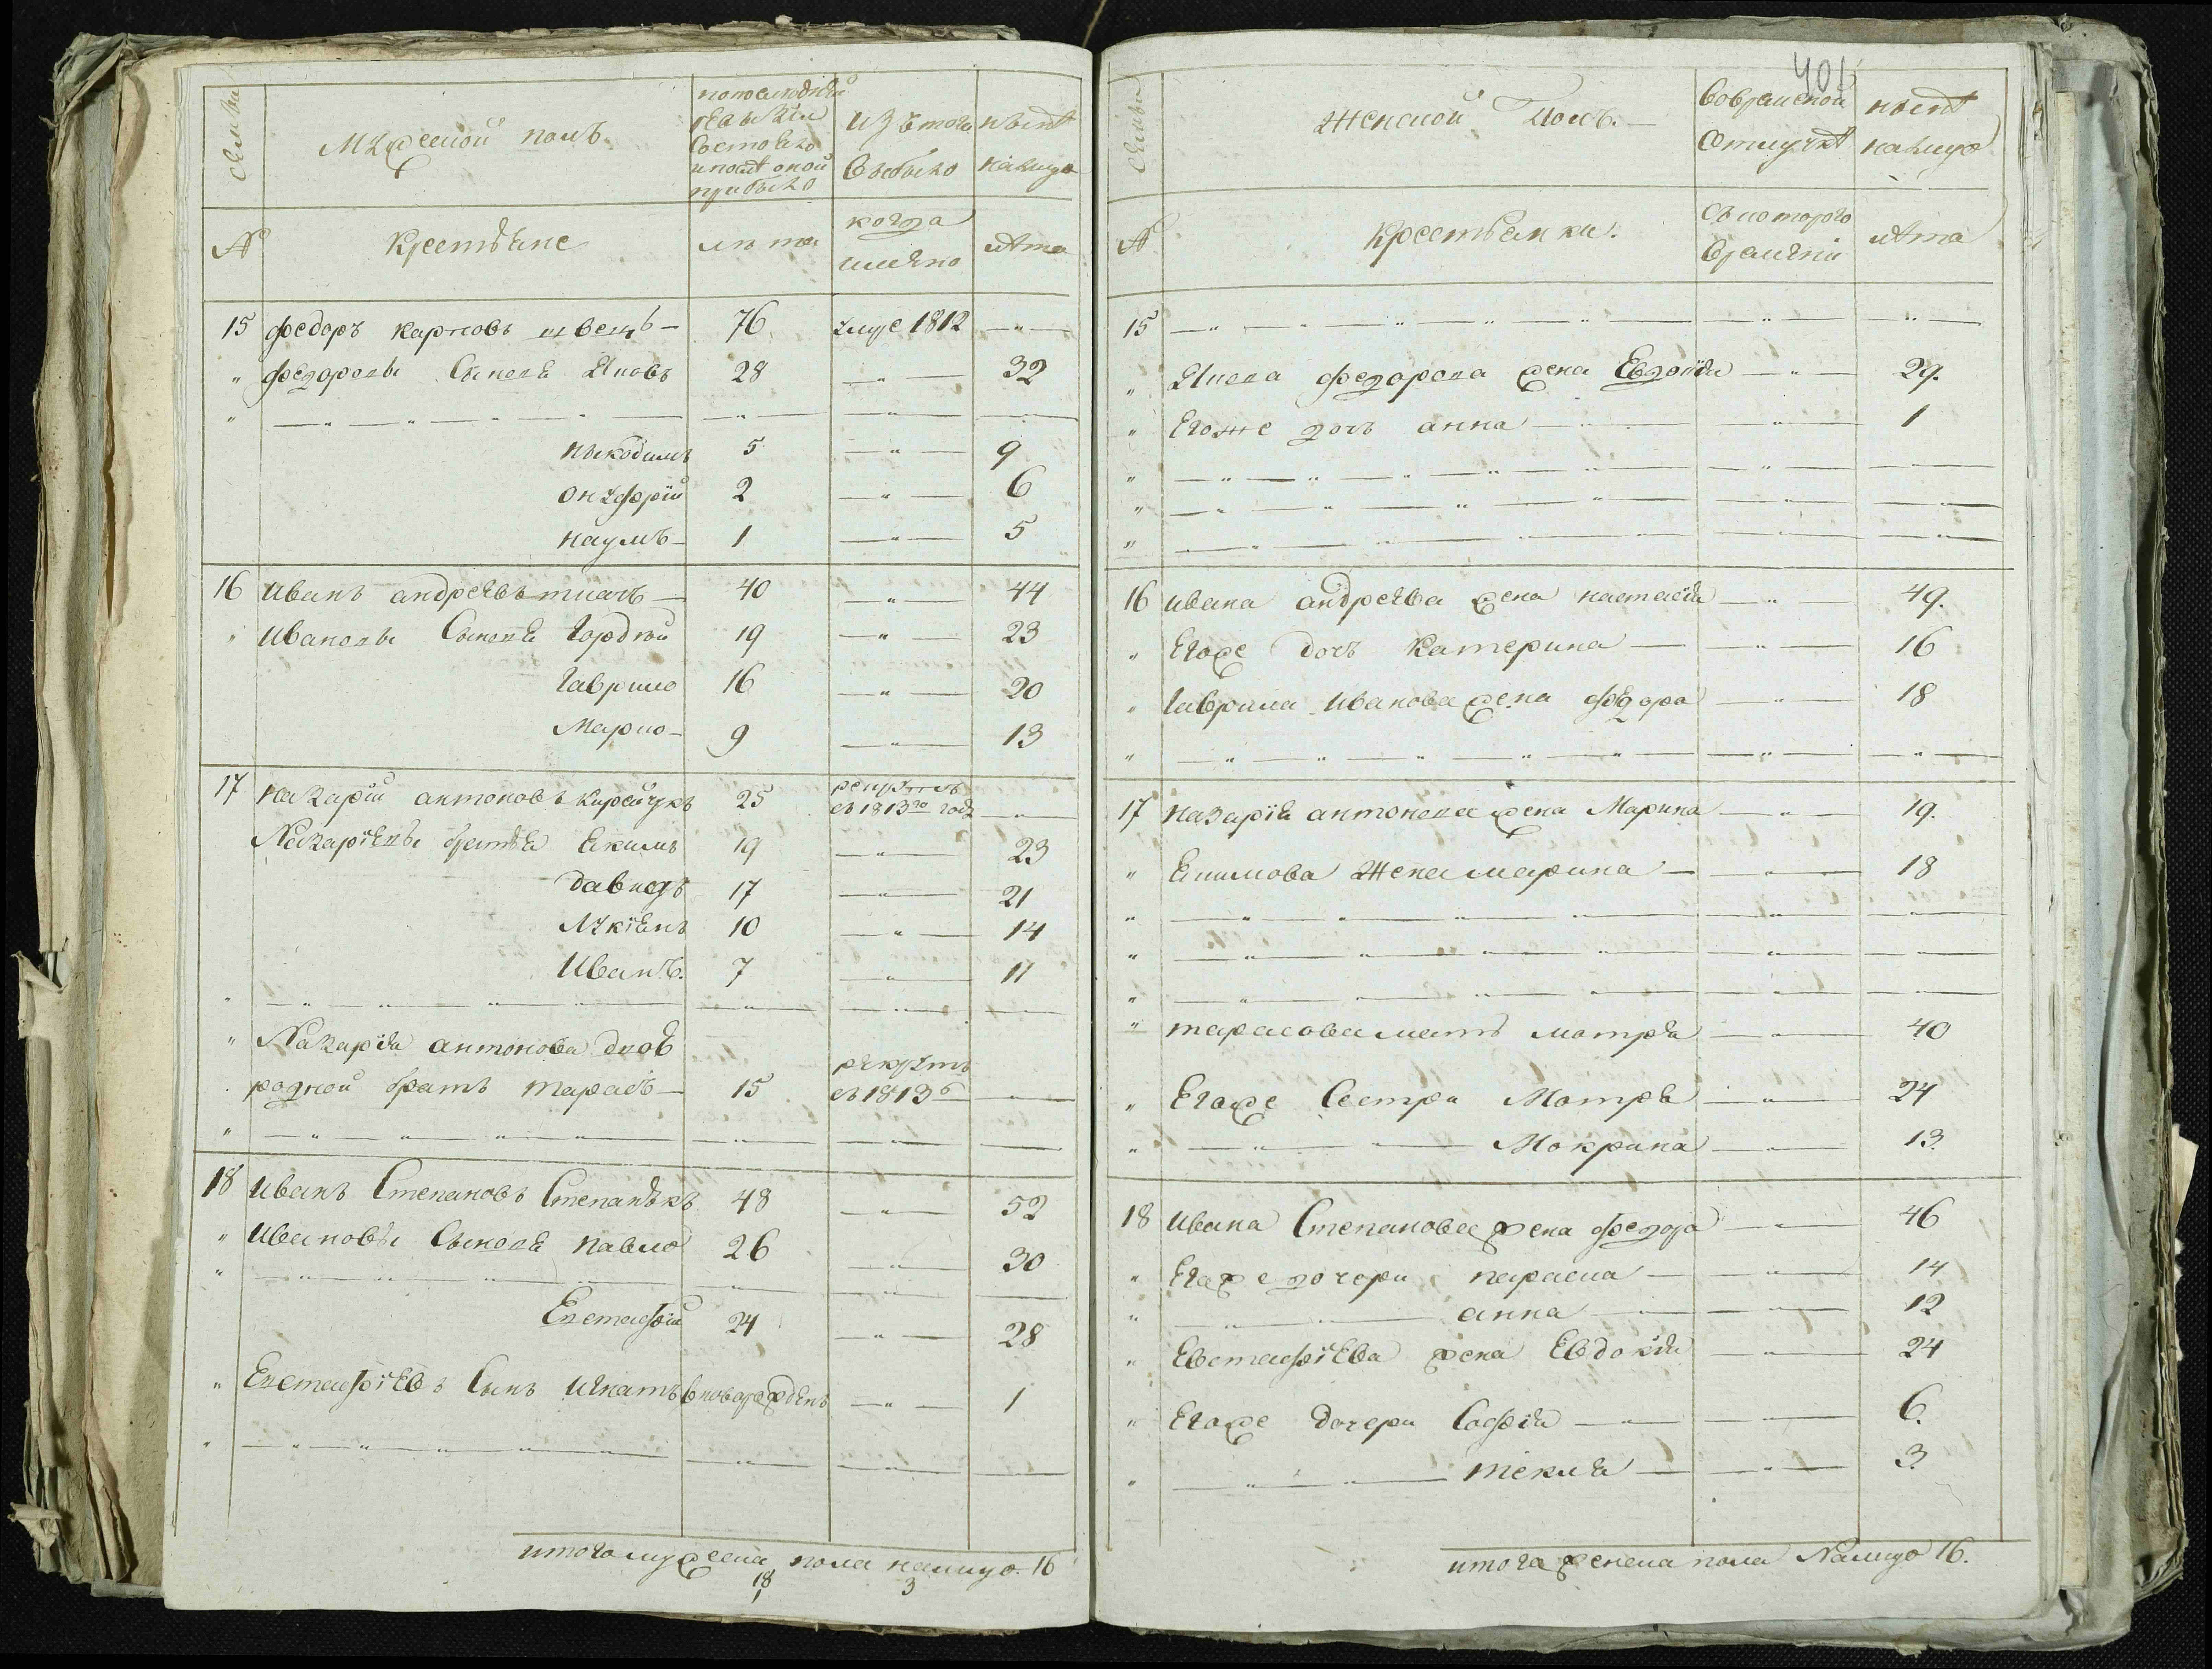 Семьи
Мужеской полъ.
По последней
ревизіи
состояло
и после оной
прибыло
Изъ того
выбыло
ныне
на лицо
№
Крестьяне
лета
когда
имѣяно
лета
15 федоръ карповъ швецъ — 76 умре 1812 — " —
" федоровы Сыновя Яковъ 28 — " — 32
никодимъ 5 — " — 9
онуфрій 2 — " — 6
наумъ — 1 — " — 5
16 иванъ андреевъ ткачъ — 40 — " — 44
" ивановы Сыновя Гордѣй 19 — " — 23
Гаврило 16 — " — 20
Марко — 9 — " — 13
17 назарій антоновъ кирейчукъ 25 рекрутъ въ 1813 году — " —
Назаріевы братья Екимъ 19 — " — 23
давидъ 17 — " — 21
Лукіянъ 10 — " — 14
Иванъ. 7 — " — 11
" Назарія антонова двоѣ
родной братъ тарасъ — 15 рекрутъ въ 1813 — " —
18 иванъ Степановъ Степанюкъ 48 — " — 52
" ивановы Сыновя павло 26 — " — 30
Евстафій 24 — " — 28
" Евстафіевъ Сынъ игнатъ вноворожденъ — " — 1
итого мужеска пола налицо. 16
18 3
1
401
Семьи
Женской Полъ. —
Во временной
отлучке
ныне
налицо
№
Крестьянки.
съ которого
времяни
лета
15 — " — " — " —
" Якова федорова жена Евдокія — " — 29.
" Егоже дочъ анна — " — 1
16 ивана андреева жена настасія — " — 49.
" Егоже дочъ Катерина — " — 16
" Гаврила иванова жена федора — " — 18
17 назарія антонова жена Марина — " — 19.
" Екимова жена марина — " — 18
" тарасова мать мотря — " — 40
" Егоже Сестри Мотря — " — 24
" — " — Мокрина — " — 13.
18 ивана Степанова жена федора — " — 46
" Егоже дочери параска — " — 14
" — " — анна — " — 12
" Евстафіева жена Евдокія — " — 24
" Егоже дочери Софія — " — 6.
" — " — текля — " — 3.
итога женска пола Налицо 16.